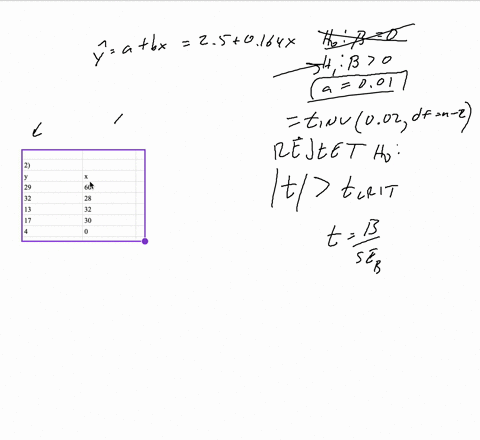 ŷ = a + bx = 2.5 + 0.164x
H₀: B = 0
H₁: B > 0
a = 0.01
= tINV(0.02, df = n-2)
REJECT H₀:
|t| > tCRIT
t = B / SE_B
2)
y x
29
32 28
13 32
17 30
4 0